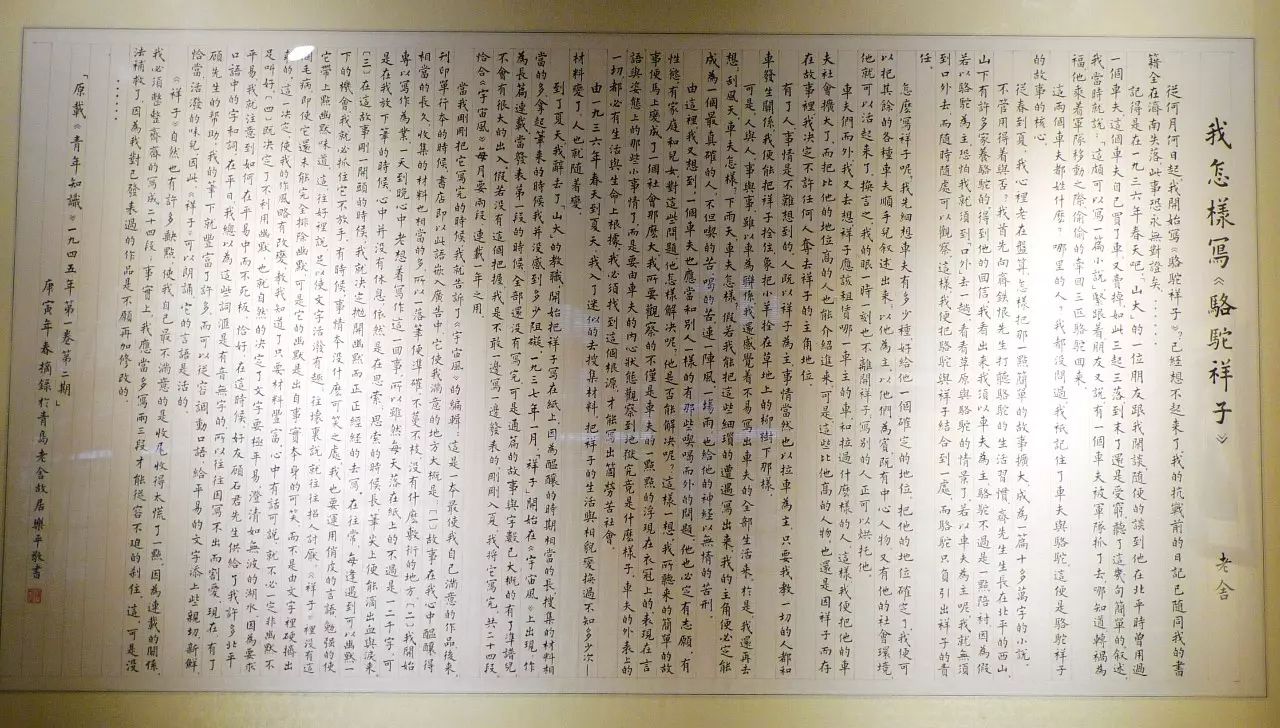 我怎樣寫《駱駝祥子》 老舍
從何月何日起我開始寫《駱駝祥子》？已經想不起來了。我的抗戰前的日記已隨同我的書
籍全在濟南失落，此事恐永無對證矣。……
記得是在一九三六年春天吧，「山大」的一位朋友跟我閒談，隨便的談到他在北平時曾用過
一個車夫。這個車夫自己買了車，又賣掉，如此三起三落，到末了還是受窮。聽了這幾句簡單的叙述，
我當時就說：「這頗可以寫一篇小說。」緊跟着，朋友又說：有一個車夫被軍隊抓了去，哪知道，轉禍為
福，他乘着軍隊移動之際，偷偷的牽回三匹駱駝回來。
這兩個車夫都姓什麼？哪里的人？我都沒問過。我祇記住了車夫與駱駝。這便是駱駝祥子
的故事的核心。
從春到夏，我心裡老在盤算，怎樣把那一點簡單的故事擴大，成為一篇十多萬字的小說。
不管用得着與否？我首先向齊鐵恨先生打聽駱駝的生活習慣。齊先生生長在北平的西山，
山下有許多家養駱駝的。得到他的回信，我看出來，我須以車夫為主，駱駝不過是一點陪村，因為假
若以駱駝為主，恐怕我就須到「口外」去一趟，看看草原與駱駝的情景了。若以車夫為主呢，我就無須
到口外去，而隨時隨處可以觀察。這樣，我便把駱駝與祥子結合到一處，而駱駝只負引出祥子的責
任。
怎麼寫祥子呢？我先細想車夫有多少種，好給他一個確定的地位。把他的地位確定了，我便可
以把其餘的各種車夫順手兒叙述出來；以他為主，以他們為賓，既有中心人物，又有他的社會環境，
他就可以活起來了。換言之，我的眼一時一刻也不離開祥子；寫別的人正可以烘托他。
車夫們而外，我又去想，祥子應該租賃哪一車主的車，和拉過什麼樣的人。這樣，我便把他的車
夫社會擴大了，而把比他的地位高的人也能介紹進來。可是，這些比他高的人物，也還是因祥子而存
在故事裡，我決定不許任何人奪去祥子的主角地位。
有了人，事情是不難想到的。人既以祥子為主，事情當然也以拉車為主。只要我教一切的人都和
車發生關係，我便能把祥子拴住，象把小羊拴在草地上的柳樹下那樣。
可是，人與人，事與事，雖以車為聯係，我還感覺着不易寫出車夫的全部生活來。於是，我還再去
想：刮風天，車夫怎樣？下雨天，車夫怎樣？假若我能把這些細瑣的遭遇寫出來，我的主角便必定能
成為一個最真確的人，不但吃的苦，喝的苦，連一陣風，一場雨，也給他的神經以無情的苦刑。
由這裡，我又想到，一個車夫也應當和別人一樣的有那些吃喝而外的問題。他也必定有志願，有
性慾，有家庭和兒女。對這些問題，他怎樣解決呢？他是否能解決呢？這樣一想，我所聽來的簡單的故
事便馬上變成了一個社會那麼大。我所要觀察的不僅是車夫的一點點的浮現在衣冠上的、表現在言
語與姿態上的那些小事情了，而是要由車夫的內心狀態觀察到地獄究竟是什麼樣子。車夫的外表上的
一切，都必有生活與生命上的根據。我必須找到這個根源，才能寫出箇勞苦社會。
由一九三六年春天到夏天，我入了迷似的去搜集材料，把祥子的生活與相貌變換過不知多少次——
材料變了，人也就隨着變。
到了夏天，我辭去了「山大」的教職，開始把祥子寫在紙上。因為醞釀的時期相當的長，搜集的材料相
當的多，拿起筆來的時候我並沒感到多少阻礙。一九三七年一月，「祥子」開始在《宇宙風》上出現，作
為長篇連載。當發表第一段的時候，全部還沒有寫完，可是通篇的故事與字數已大概的有了準譜兒，
不會有很大的出入。假若沒有這個把握，我是不敢一邊寫一邊發表的。剛剛入夏，我將它寫完，共二十四段，
恰合《宇宙風》每月要兩段，連載一年之用。
當我剛剛把它寫完的時候，我就告訴了《宇宙風》的編輯：這是一本最使我自己滿意的作品。後來，
刊印單行本的時候，書店即以此語嵌入廣告中。它使我滿意的地方大概是：（一）故事在我心中醞釀得
相當的長久，收集的材料也相當的多，所以一落筆便準確，不蔓不枝，沒有什麼敷衍的地方。（二）我開始
專以寫作為業，一天到晚心中老想着寫作這一回事，所以雖然每天落在紙上的不過是一二千字，可
是在我放下筆的時候，心中並沒有休息，依然是在思索；思索的時候長，筆尖上便能滴出血與淚來。
（三）在這故事剛一開頭的時候，我就決定拋開幽默而正正經經的去寫。在往常，每逢遇到可以幽默一
下的機會，我就必抓住它不放手。有時候，事情本沒什麼可笑之處，我也要運用俏皮的言語，勉強的使
它帶上點幽默味道。這，往好裡說，足以使文字活潑有趣；往壞裏說，就往往招人討厭。《祥子》裡沒有這
個毛病。即使它還未能完全排除幽默，可是它的幽默是出自事實本身的可笑，而不是由文字裡硬擠出
來的。這一決定，使我的作風略有改變，教我知道了只要材料豐富，心中有話可說，就不必一定非幽默不
足呌好。（四）既決定了不利用幽默，也就自然的決定了文字要極平易，澄清如無波的湖水。因為要求
平易，我就注意到如何在平易中而不死板。恰好，在這時候，好友顧石君先生供給了我許多北平
口語中的字和詞。在平日，我總以為這些詞滙是有音無字的，所以往往因寫不出而割愛。現在，有了
顧先生的幫助，我的筆下就豐富了許多，而可以從容調動口語，給平易的文字添上些親切，新鮮，
恰當，活潑的味兒。因此，《祥子》可以朗誦。它的言語是活的。
《祥子》自然也有許多缺點。使我自己最不滿意的是收尾收得太慌了一點。因為連載的關係，
我必須整整齊齊的寫成二十四段；事實上，我應當多寫兩三段才能從容不迫的剎住。這，可是沒
法補救了，因為我對已發表過的作品是不願再加修改的。
……
「原載《青年知識》一九四五年第一卷第二期」
庚寅年春摘錄於青島老舍故居 樂平敬書